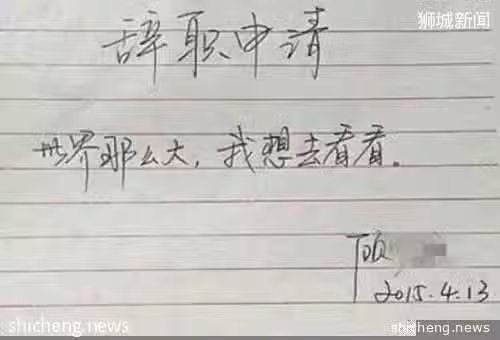 狮城新闻
辞职申请
世界那么大，我想去看看。
顾
2015.4.13
shicheng.news
shicheng.news